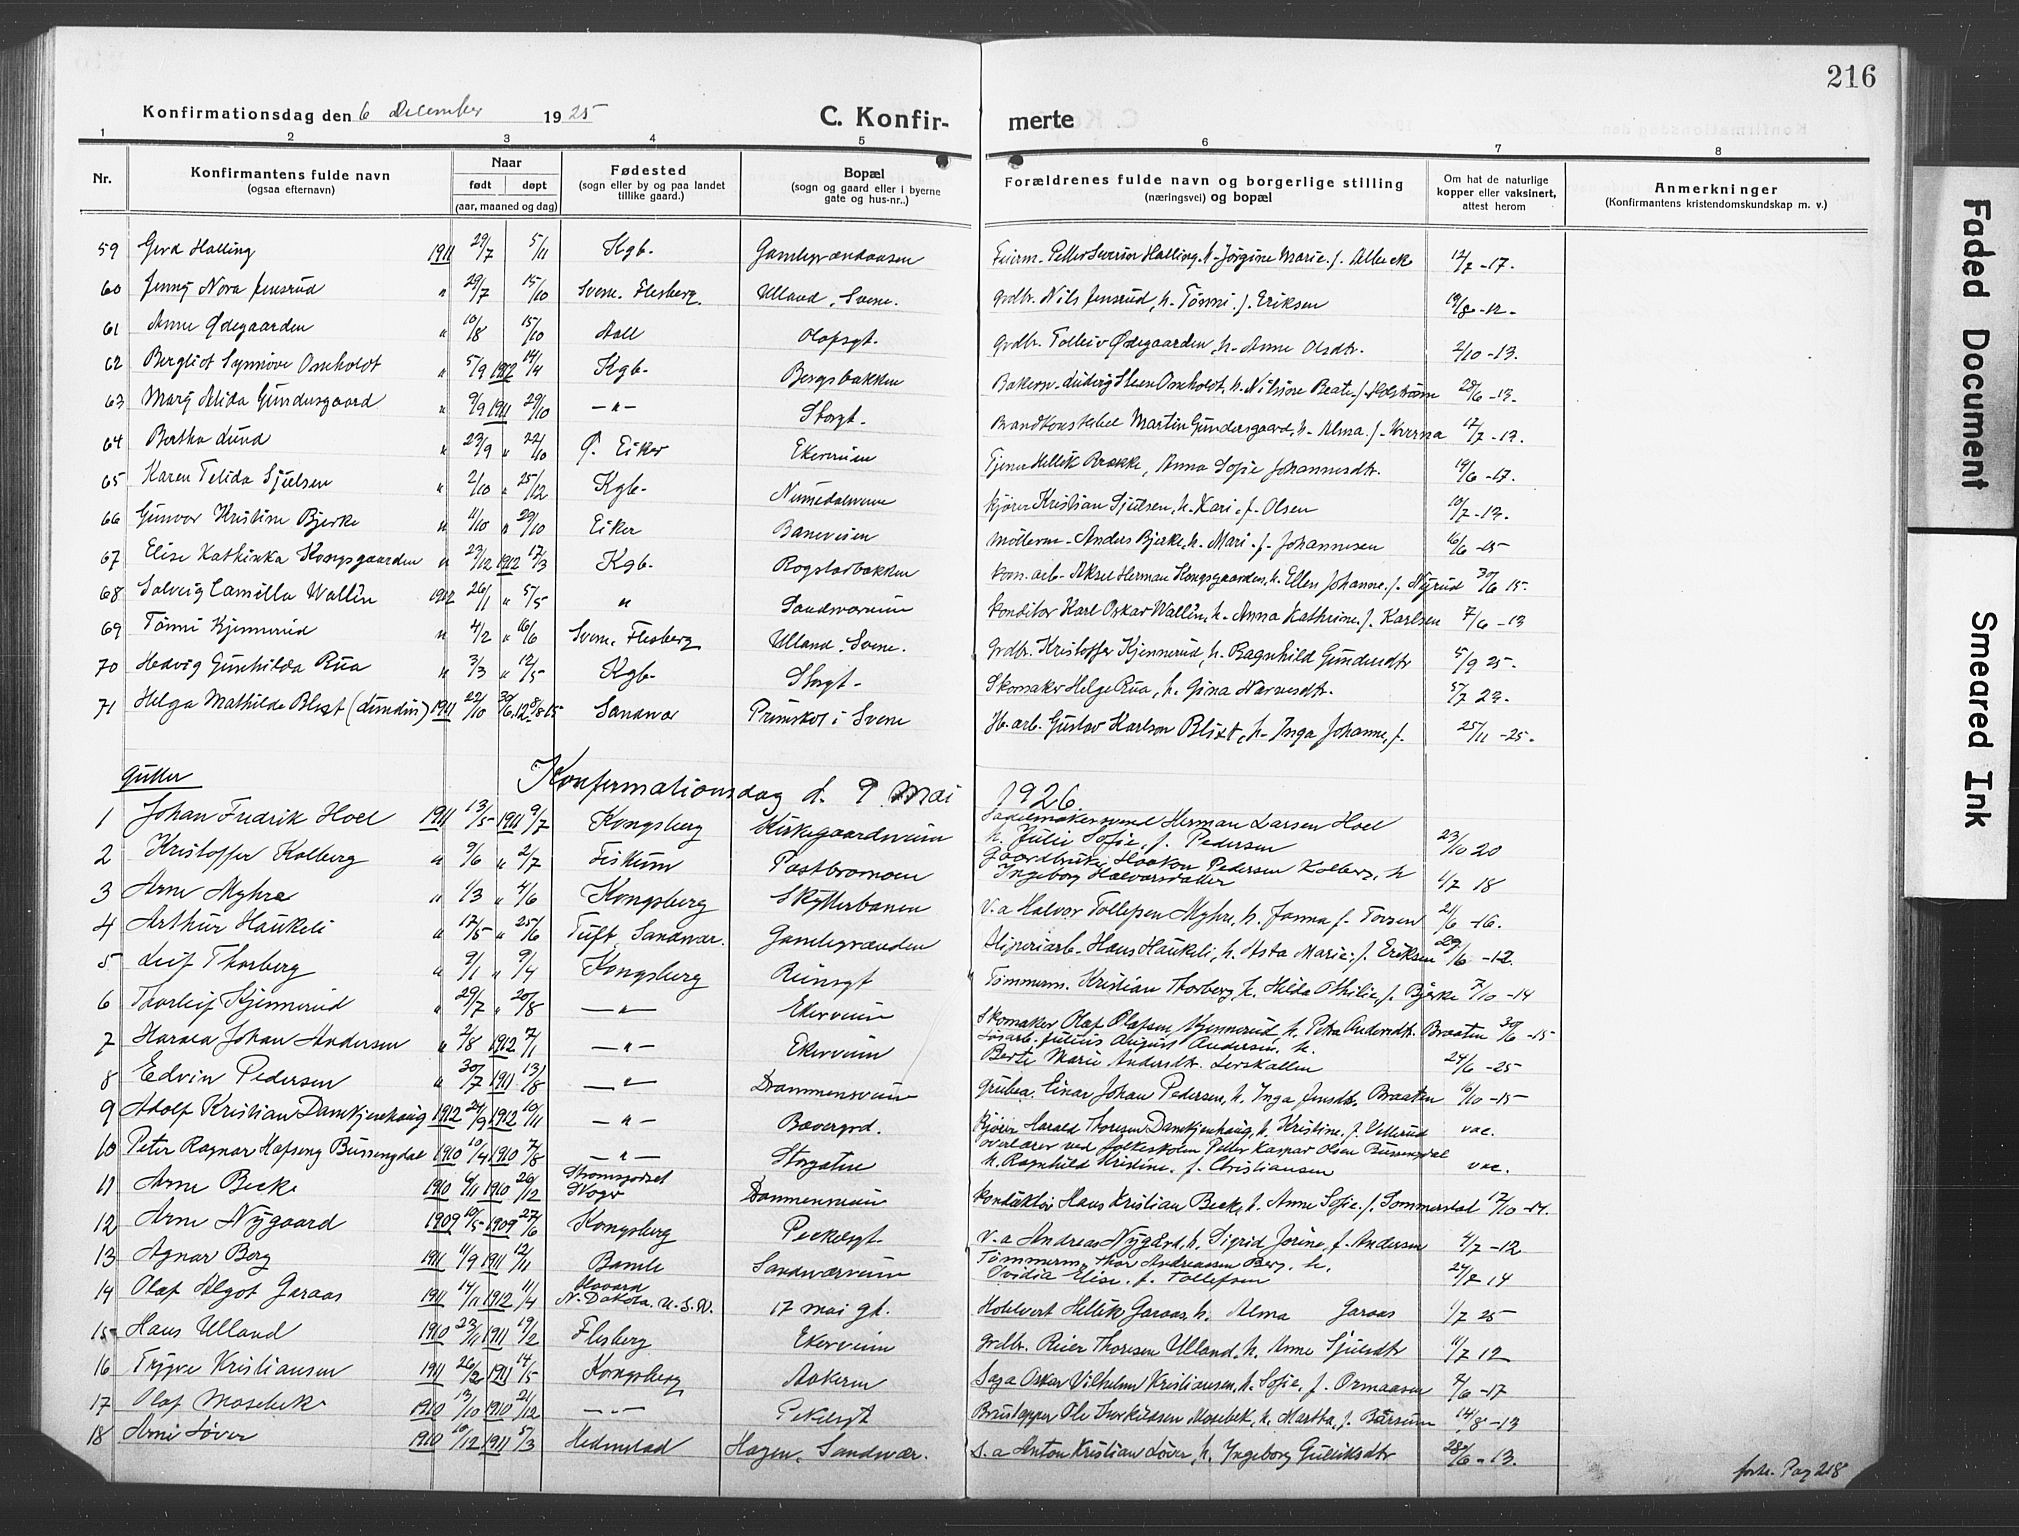 216
Konfirmationsdag den 6 December 1925 C. Konfirmerte
1 2 3 4 5 6 7 8
Nr. Konfirmantens fulde navn (ogsaa efternavn) Naar født døpt (aar, maaned og dag) Fødested (sogn eller by og paa landet tillike gaard.) Bopæl (sogn og gaard eller i byerne gate og hus-nr..) Forældrenes fulde navn og borgerlige stilling (næringsvei) og bopæl Om hat de naturlige kopper eller vaksinert, attest herom Anmerkninger (Konfirmantens kristendomskundskap m. v.)
59 Gerd Halling 1911 29/7 5/11 Kgb. Gamlegrændaasen Feierm. Petter Severin Halling, h. Jørgine Marie f. Albeck 12/7 -17.
60 Jenny Nora Jensrud " 29/7 15/10 Svene. Flesberg. Ulland, Svene. Grdbr. Nils Jensrud, h. Tønni f. Eriksen 19/8 -12-
61 Anne Ødegaarden " 10/8 15/10 Aall Olafsgt. Grdbr. Tolleiv Ødegaarden, h. Anne Olsdtr. 2/10 -13.
62 Bergliot Synnøve Omholdt " 5/9 1912 14/4 Kgb- Bergsbakken Bakerm. Ludvig Steen Omholdt, h. Nilsine Beate f. Holstrøm 28/6 -13.
63 Mary Alida Gundersgaard " 9/9 1911 29/10 -"- Storgt. Brandkonstabel Martin Gundersgaard, h. Alma f. Kverna 12/7 -13.
64 Bertha Lund " 23/9 " 22/10 Ø. Eiker Ekerveien Tjener Hellik Brække, Anna Sofie Johannesdtr. 19/6 -17.
65 Karen Telida Sjulsen " 2/10 " 25/12 Kgb- Numedalsveien Kjører Kristian Sjulsen, h. Kari f. Olsen 10/7 -13.
66 Gunvor Kristine Bjerke " 11/10 " 29/10 Eiker Baneveien Møllerm. Anders Bjerke, h. Mari f. Johannesen 16/6 -15
67 Elise Kathinka Kongsgaarden " 23/12 1912 17/3 Kgb- Rogstadbakken Kom. arb. Aksel Herman Kongsgaarden, h. Ellen Johanne f. Nyrud 30/6 15.
68 Solveig Camilla Wallin 1912 26/1 " 5/5 " Sandsværveien Konditor Karl Oskar Wallin, h. Anna Kathrine f. Karlsen 7/6 -13
69 Tønni Kjennerud " 4/2 " 16/6 Svene, Flesberg Ulland, Svene. Grdbr. Kristoffer Kjennerud, h. Ragnhild Gundersdtr 5/9 25.
70 Hedvig Gunhilda Rua " 3/3 " 12/5 Kgb- Storgt. Skomaker Helge Rua, h. Gina Narvesdtr. 5/7 23.
71 Helga Mathilde Blixt (Lundin) 1911 22/10 30/6.12 8/8-15 Sandsvær Primskot i Svene Hb. arb. Gustav Karlson Blixt, h. Inga Johanne f. 25/11 -25.
Gutter Konfirmationsdag d. 9 Mai 1926.
1 Johan Fredrik Hoel 1911 13/5 1911 9/7 Kongsberg Kirkegaardsveien Sadelmakersvend Herman Larsen Hoel
h. Julie Sofie, f. Pedersen 23/10 20
2 Kristoffer Kolberg " 9/6 " 2/7 Fiskum Postbromoen Gaardbruker Haakon Pedersen Kolberg, h
Ingeborg Halvorsdatter 4/7 18
3 Arne Myhre " 1/3 " 4/6 Kongsberg Skytterbanen V.a Halvor Tollefsen Myhre, h. Janna f. Torsen 21/6 -16.
4 Arthur Haukeli " 17/5 " 25/6 Tuft, Sandsvær. Gamlegrænden Sliperiarb. Hans Haukeli, h. Asta Marie f. Eriksen 29/6 -12.
5 Leif Thorberg " 9/1 " 9/4 Kongsberg Reinsgt Tømmerm. Kristian Thorberg, h. Hilda Othilie f. Bjerke 7/10 -14
6 Thorleif Kjennerud " 29/7 " 20/8 -"- Ekerveien Skomaker Olaf Olafsen Kjennerud, h. Petra Andersdt. Braaten 30/6 -15
7 Harald Johan Andersen " 2/8 1912 7/1 -"- Ekerveien Løsarb. Julius August Andersen, h.
Berte Marie Andersdt. Lerskallen 24/6 -25
8 Edvin Pedersen " 30/7 1911 13/8 -"- Drammensveien Grubea. Einar Johan Pedersen, h. Inga Jensdt. Braaten 6/10 -15
9 Adolf Kristian Damkjenhaug 1912 24/9 1912 10/11 -"- Bævergrd. Kjører Harald Thoresen Damkjenhaug, h. Kristine f. Vetterud vac.
10 Peter Ragnar Hafseng Bussengdal 1910 10/4 1910 7/8 -"- Storgaten Overlærer ved folkeskolen Petter Kaspar Olsen Bussengdal
h. Ragnhild Kristine f. Christiansen vac.
11 Arne Becke 1910 6/11 1910 26/12 Strømsgodset Skoger Drammensveien Konduktør Hans Kristian Becke, h. Anne Sofie f. Sommerstad 12/10 -14.
12 Arne Nygaard 1909 10/5 1909 27/6 Kongsberg Peckelsgt. V.a Andreas Nygård, h. Sigrid Jorine, f. Andersen 4/7 -12
13 Agnar Berg 1911 11/9 1911 12/11 Bamle Sandsværveien Tømmerm. Thor Andreassen Berg, h.
Ovidia Elise, f. Tollefsen 24/7 14
14 Olaf Algot Garaas 1911 14/11 1912 11/4 N. Dakota. U.S.A. 17 mai gt. Hotelvert Hellik Garaas, h. Alma Garaas 1/7 25
15 Hans Ulland 1910 23/11 1911 19/2 Flesberg Ekerveien Grdbr. Reier Thoresen Ulland, h. Anne Sjulsdtr 11/7 12
16 Trygve Kristiansen 1911 26/2 1911 14/5 Kongsberg Aakeren Saga Oskar Vilhelm Kristiansen, h. Sofie f. Ormaasen 7/6 -17
17 Olaf Mosebek 1910 13/10 1910 21/12 -"- Pekelsgt Brustapper Ole Thorkildsen Mosebek, h. Martha f. Bårsum 14/8 -13
18 Arne Løver 1910 10/12 1911 5/3 Hedenstad Hagen, Sandsvær. S.a Anton Kristian Løver, h. Ingeborg Gulliksdtr 28/6 -13.
forts. Pag 218
Faded Document
Smeared Ink